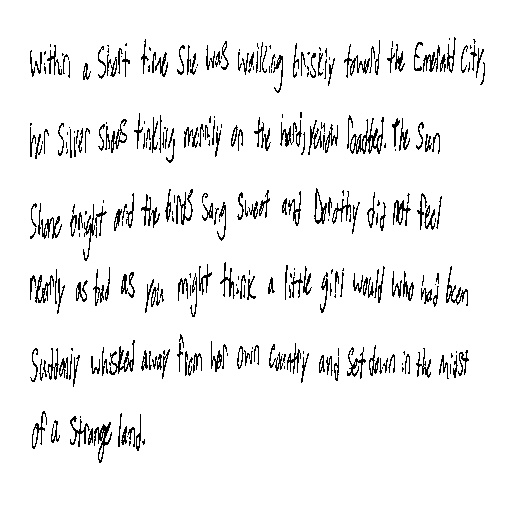 Within a short time she was walking briskly toward the Emerald City,
her Silver Shoes tinkling merrily on the hard, yellow roadbed. The sun
shone bright and the birds sang sweet and Dorothy did not feel
nearly as bad as you might think a little girl would who had been
suddenly whisked away from her own country and set down in the midst
of a strange land.